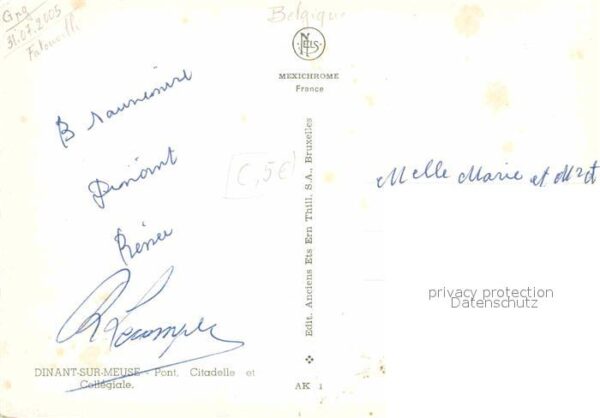 31.07.2005
Belgique
NELS
MEXICHROME
France
Dinant
Renée
0,5€
Melle Marie et Mr et
privacy protection
Datenschutz
Edit. Anciens Ets Ern Thill. S.A., Bruxelles
DINANT-SUR-MEUSE - Pont, Citadelle et
Collégiale.
AK 1